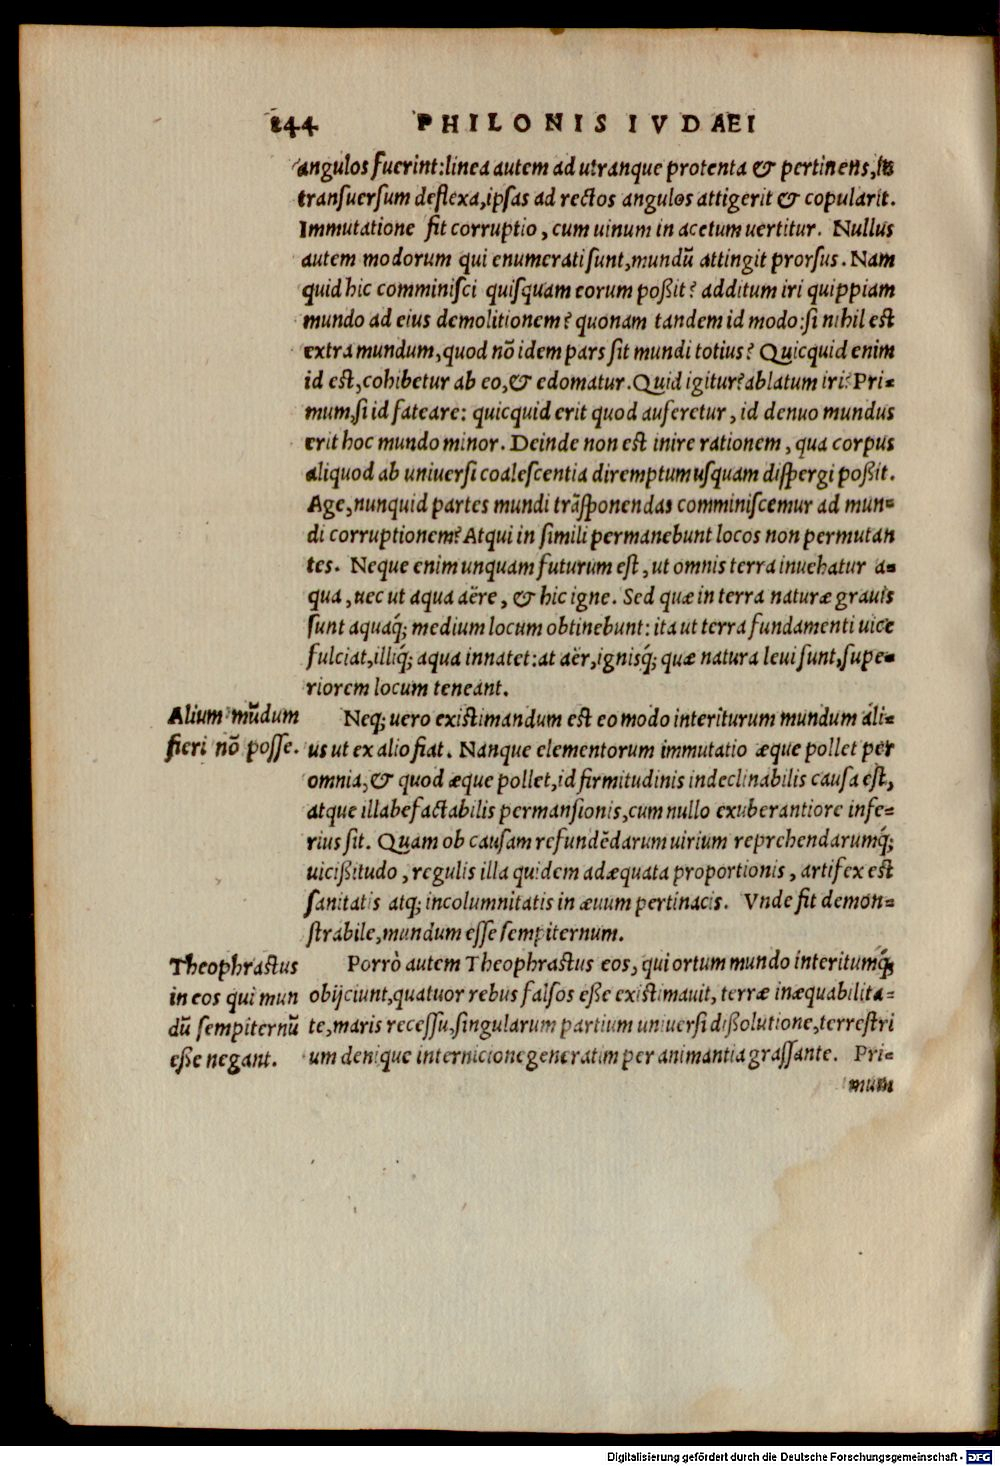 244 PHILONIS IVDAEI
angulos fuerint: linea autem ad utranque protenta & pertinens, in
transuersum deflexa, ipsas ad rectos angulos attigerit & copularit.
Immutatione fit corruptio, cum uinum in acetum uertitur. Nullus
autem modorum qui enumerati sunt, mundū attingit prorsus. Nam
quid hic comminisci quisquam eorum poßit? additum iri quippiam
mundo ad eius demolitionem? quonam tandem id modo: si nihil est
extra mundum, quod nō idem pars sit mundi totius? Quicquid enim
id est, cohibetur ab eo, & edomatur. Quid igitur? ablatum iri? Pri-
mum, si id fateare: quicquid erit quod auferetur, id denuo mundus
erit hoc mundo minor. Deinde non est inire rationem, qua corpus
aliquod ab uniuersi coalescentia diremptum usquam dispergi poßit.
Age, nunquid partes mundi trãsponendas comminiscemur ad mun-
di corruptionem? Atqui in simili permanebunt locos non permutan
tes. Neque enim unquam futurum est, ut omnis terra inuehatur a-
qua, nec ut aqua aëre, & hic igne. Sed quæ in terra naturæ grauis
sunt aquaq́; medium locum obtinebunt: ita ut terra fundamenti uice
fulciat, illiq́; aqua innatet: at aër, ignisq́; quæ natura leui sunt, supe-
riorem locum teneant.
Alium mūdum
fieri nō posse.
Neq; uero existimandum est eo modo interiturum mundum ali-
us ut ex alio fiat. Nanque elementorum immutatio æque pollet per
omnia, & quod æque pollet, id firmitudinis indeclinabilis causa est,
atque illabefactabilis permansionis, cum nullo exuberantiore infe-
rius sit. Quam ob causam refundēdarum uirium reprehendarumq́;
uicißitudo, regulis illa quidem adæquata proportionis, artifex est
sanitatis atq; incolumnitatis in æuum pertinacis. Vnde fit demon-
strabile, mundum esse sempiternum.
Theophrastus
in eos qui mun
dū sempiternū
eße negant.
Porrò autem Theophrastus eos, qui ortum mundo interitumq́;
obijciunt, quatuor rebus falsos eße existimauit, terræ inæquabilita-
te, maris recessu, singularum partium uniuersi dißolutione, terrestri
um denique internicione generatim per animantia grassante. Pri-
mum
Digitalisierung gefördert durch die Deutsche Forschungsgemeinschaft - DFG